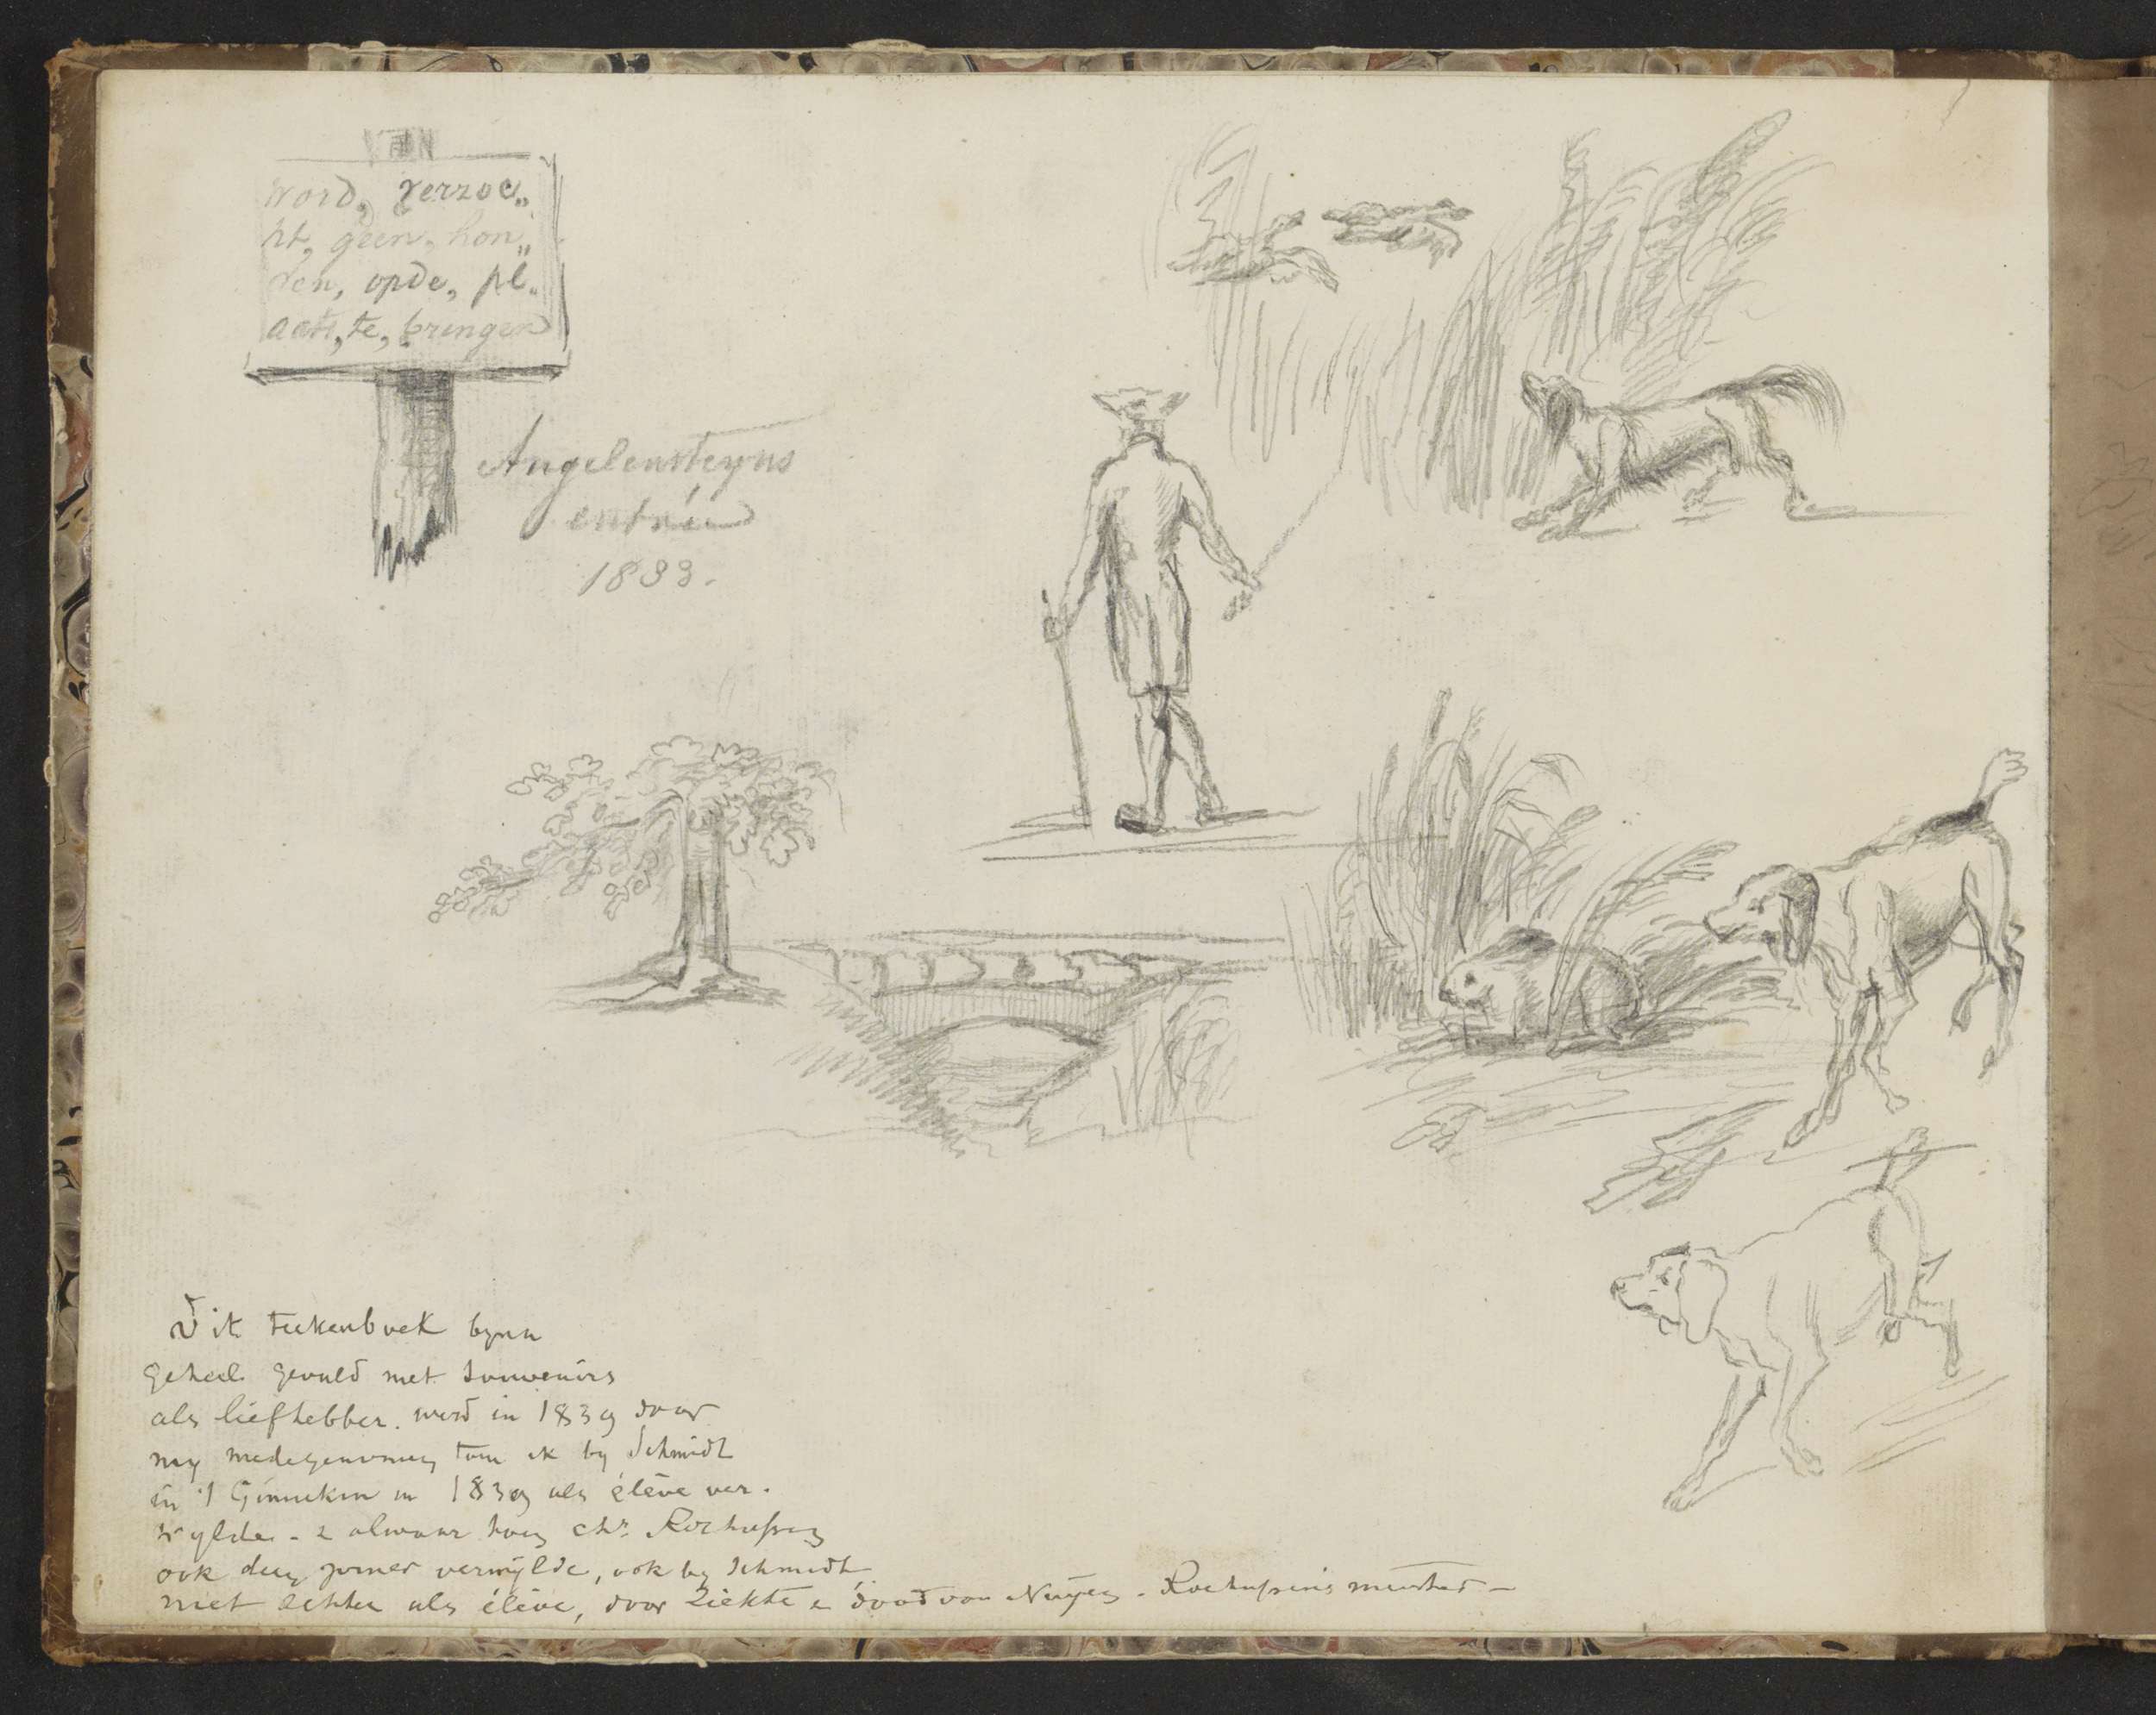 word, verzoe„
kt, geen, hon„
den, opde, pl„
aats, te, bringen
Angelensteyns
entrée
1833.
Dit teekenboek byna
geheel gevuld met souvenirs
als liefhebber. werd in 1839 door
my medegenomen toen ik by Schmidt
in 't Ginneken in 1839 als élève ver-
wylde - & alwaar toen chs. Rochussen
ook dien zomer verwylde, ook by Schmidt
niet echter als élève, door ziekte & dood van Nuyen - Rochussens meester -